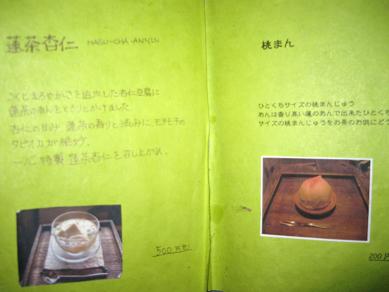 蓮茶杏仁 HASU-CHA-ANNIN
とまろやかさを追求した杏仁豆腐に
蓮茶のあんをとろりとかけました
杏仁の甘み 蓮茶の香りと渋みに、モチモチの
タピオカが絶妙。
特製 蓮茶杏仁を召し上がれ。
500円
桃まん
ひとくちサイズの桃まんじゅう
あんは香り高い蓮のあんで出来たひとく
サイズの桃まんじゅうをお茶のお供にどう
200円